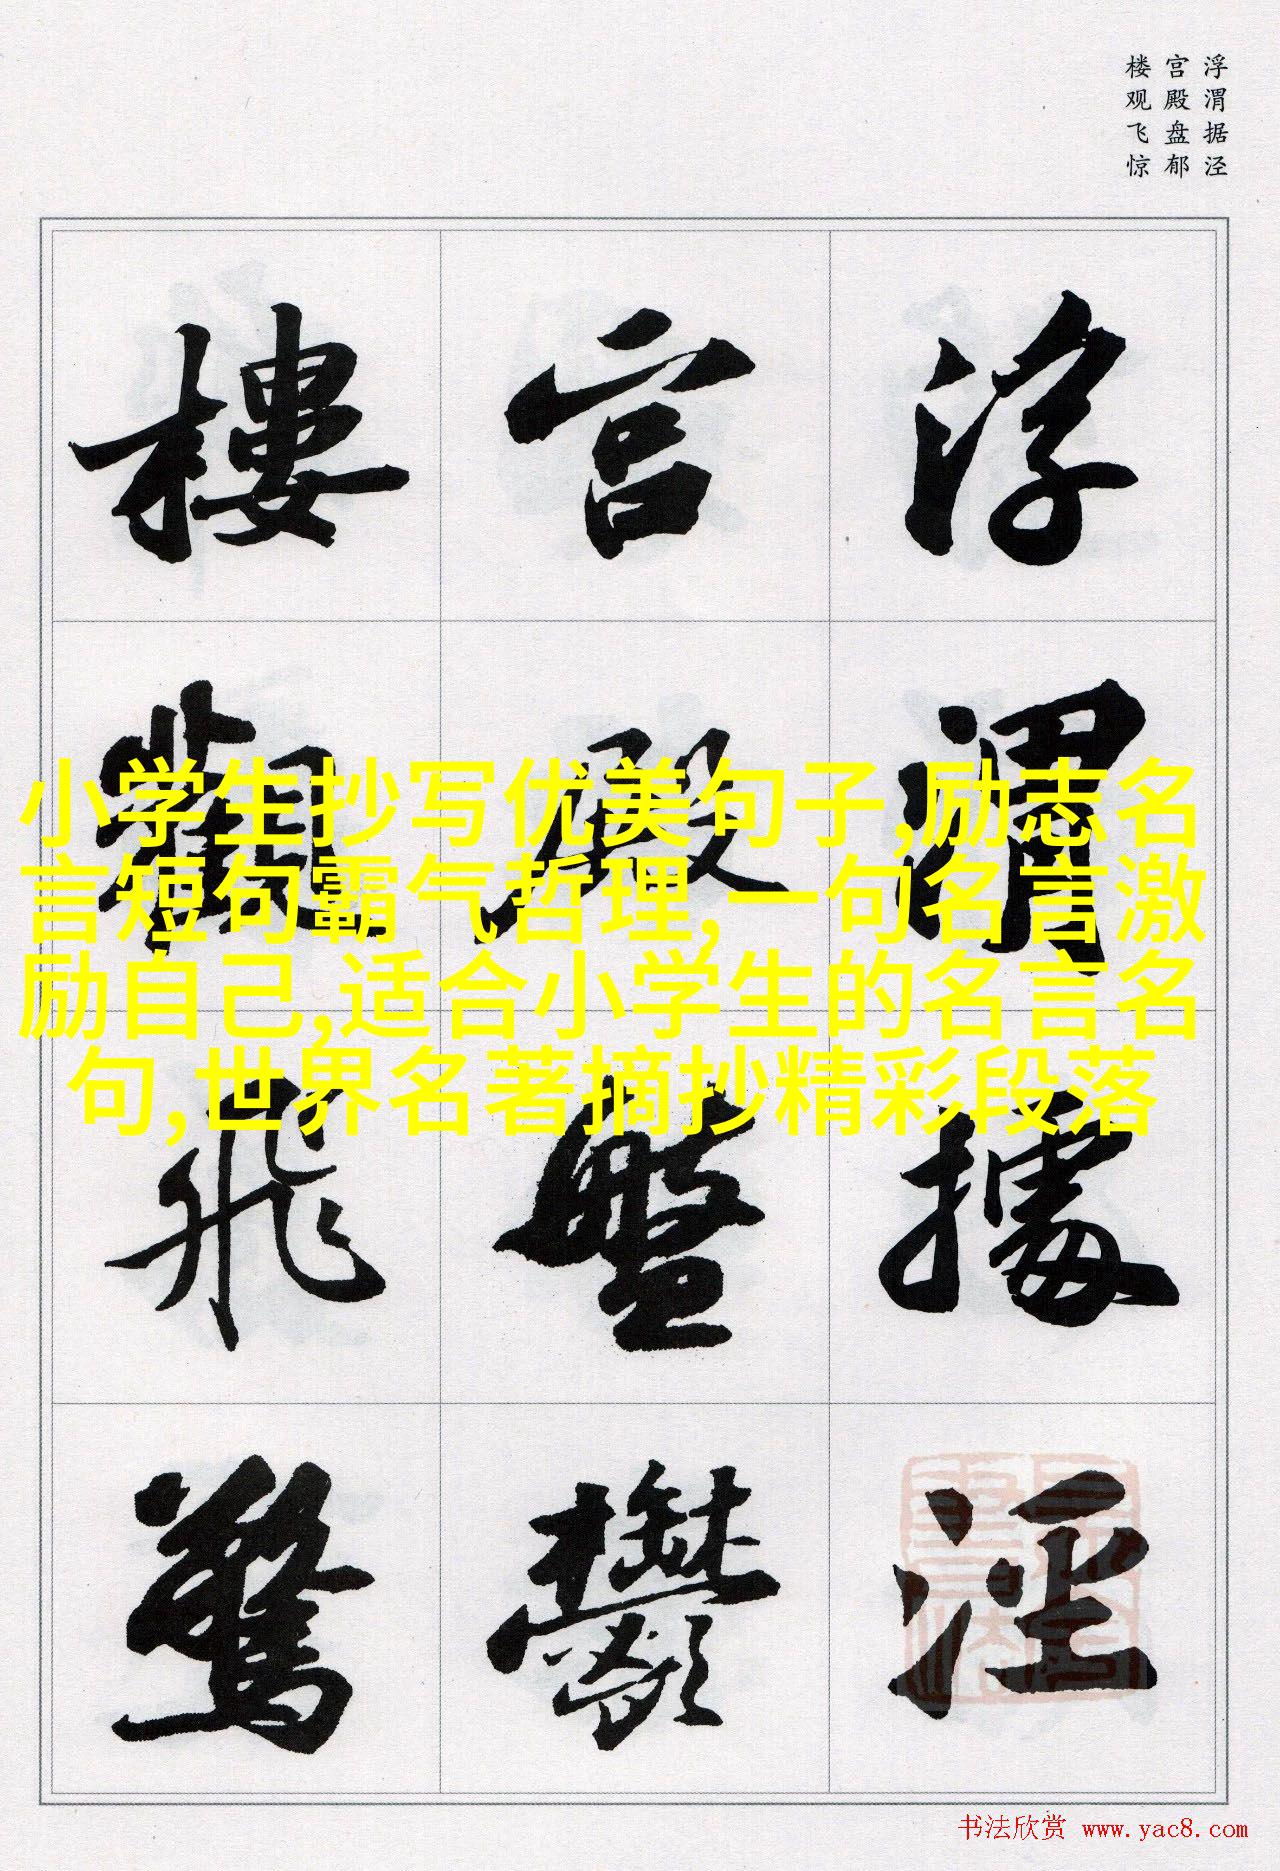 浮渭据泾
宫殿盘郁
楼观飞惊
浮渭據涇
宫殿盤鬱
樓觀飛驚
小学生抄写优美句子,励志名
言短句霸气哲理,一句名言激
励自己,适合小学生的名言名
句,世界名著摘抄精彩段落
书法欣赏 www.yac8.com